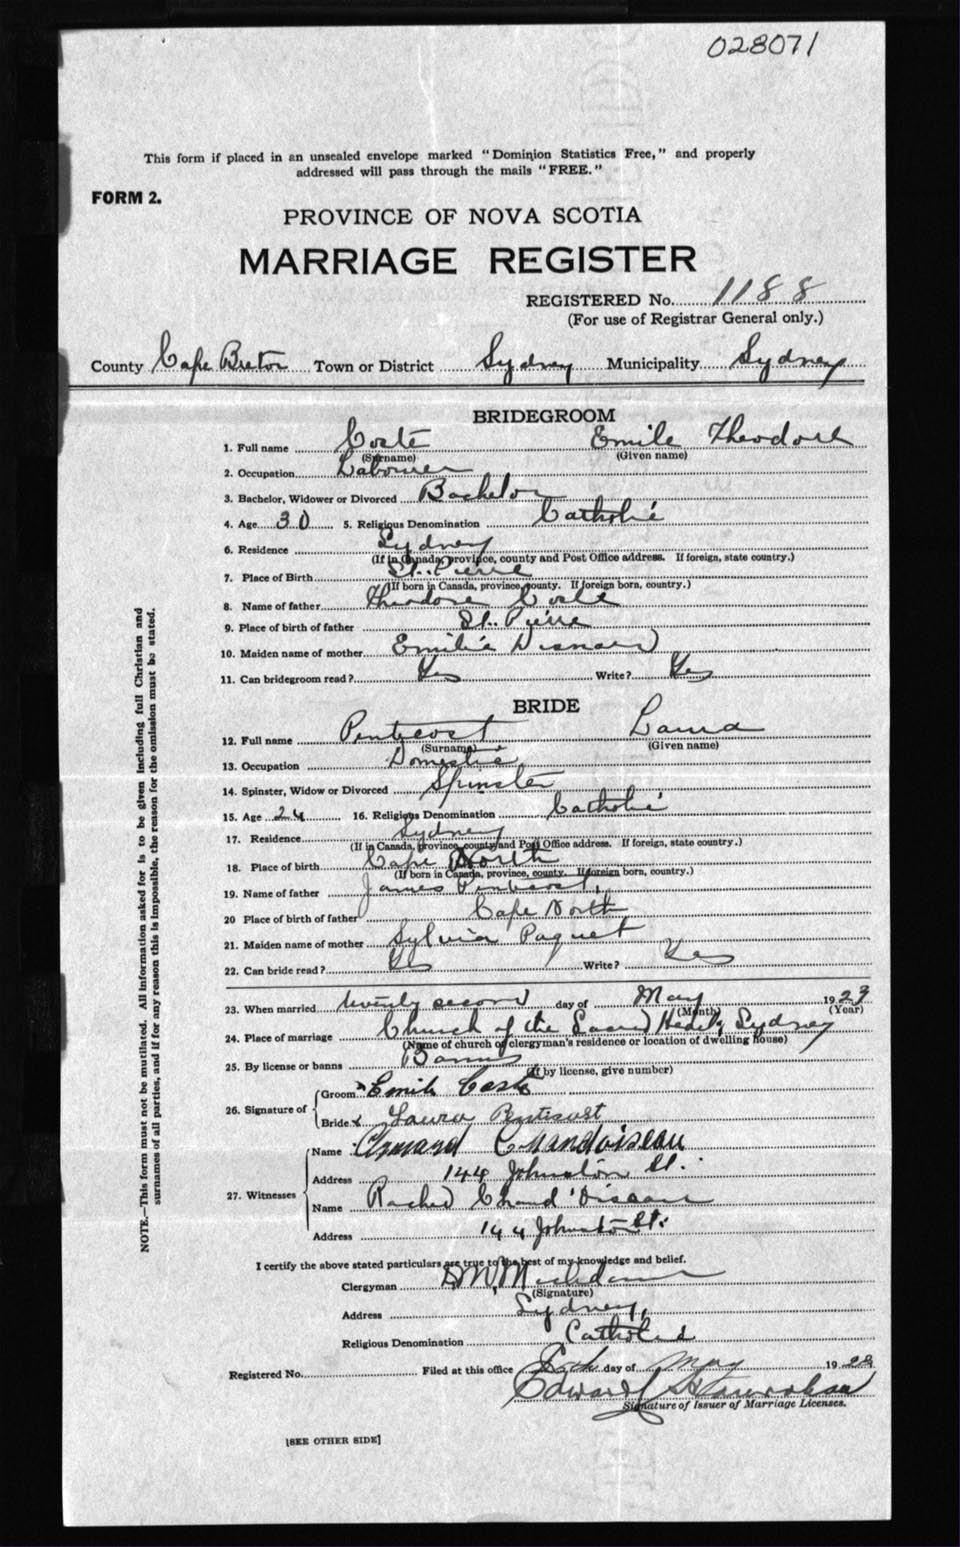 028071
This form if placed in an unsealed envelope marked "Dominion Statistics Free," and properly
addressed will pass through the mails "FREE."
FORM 2.
PROVINCE OF NOVA SCOTIA
MARRIAGE REGISTER
REGISTERED No. 1188
(For use of Registrar General only.)
County Cape Breton Town or District Sydney Municipality Sydney
BRIDEGROOM
1. Full name Coste Emile Theodore
(Surname) (Given name)
2. Occupation Labourer
3. Bachelor, Widower or Divorced Bachelor
4. Age 30 5. Religious Denomination Catholic
6. Residence Sydney
(If in Canada, province, county and Post Office address. If foreign, state country.)
7. Place of Birth St. Pierre
(If born in Canada, province, county. If foreign born, country.)
8. Name of father Theodore Coste
9. Place of birth of father St. Pierre
10. Maiden name of mother Emilie
11. Can bridegroom read? Yes Write? Yes
BRIDE
12. Full name Pentecost Laura
(Surname) (Given name)
13. Occupation Domestic
14. Spinster, Widow or Divorced Spinster
15. Age 24 16. Religious Denomination Catholic
17. Residence Sydney
(If in Canada, province, county and Post Office address. If foreign, state country.)
18. Place of birth Cape North
(If born in Canada, province, county. If foreign born, country.)
19. Name of father James Pentecost,
20 Place of birth of father Cape North
21. Maiden name of mother Sylvia Paquet
22. Can bride read? Yes Write? Yes
23. When married twenty second day of May 1923
(Month) (Year)
24. Place of marriage Church of the Sacred Heart, Sydney
(Name of church of clergyman's residence or location of dwelling house)
25. By license or banns Banns
(If by license, give number)
26. Signature of Groom Emile Coste
Bride x Laura Pentecost
27. Witnesses Name Armand Chandoiseau
Address 144 Johnston St.
Name Rachel
Address 144 Johnston St.
I certify the above stated particulars are true to the best of my knowledge and belief.
Clergyman
(Signature)
Address Sydney,
Religious Denomination Catholic
Registered No. Filed at this office day of May 1923
Edward
Signature of Issuer of Marriage Licenses.
[SEE OTHER SIDE]
NOTE.—This form must not be mutilated. All information asked for is to be given including full Christian and
surnames of all parties, and if for any reason this is impossible, the reason for the omission must be stated.